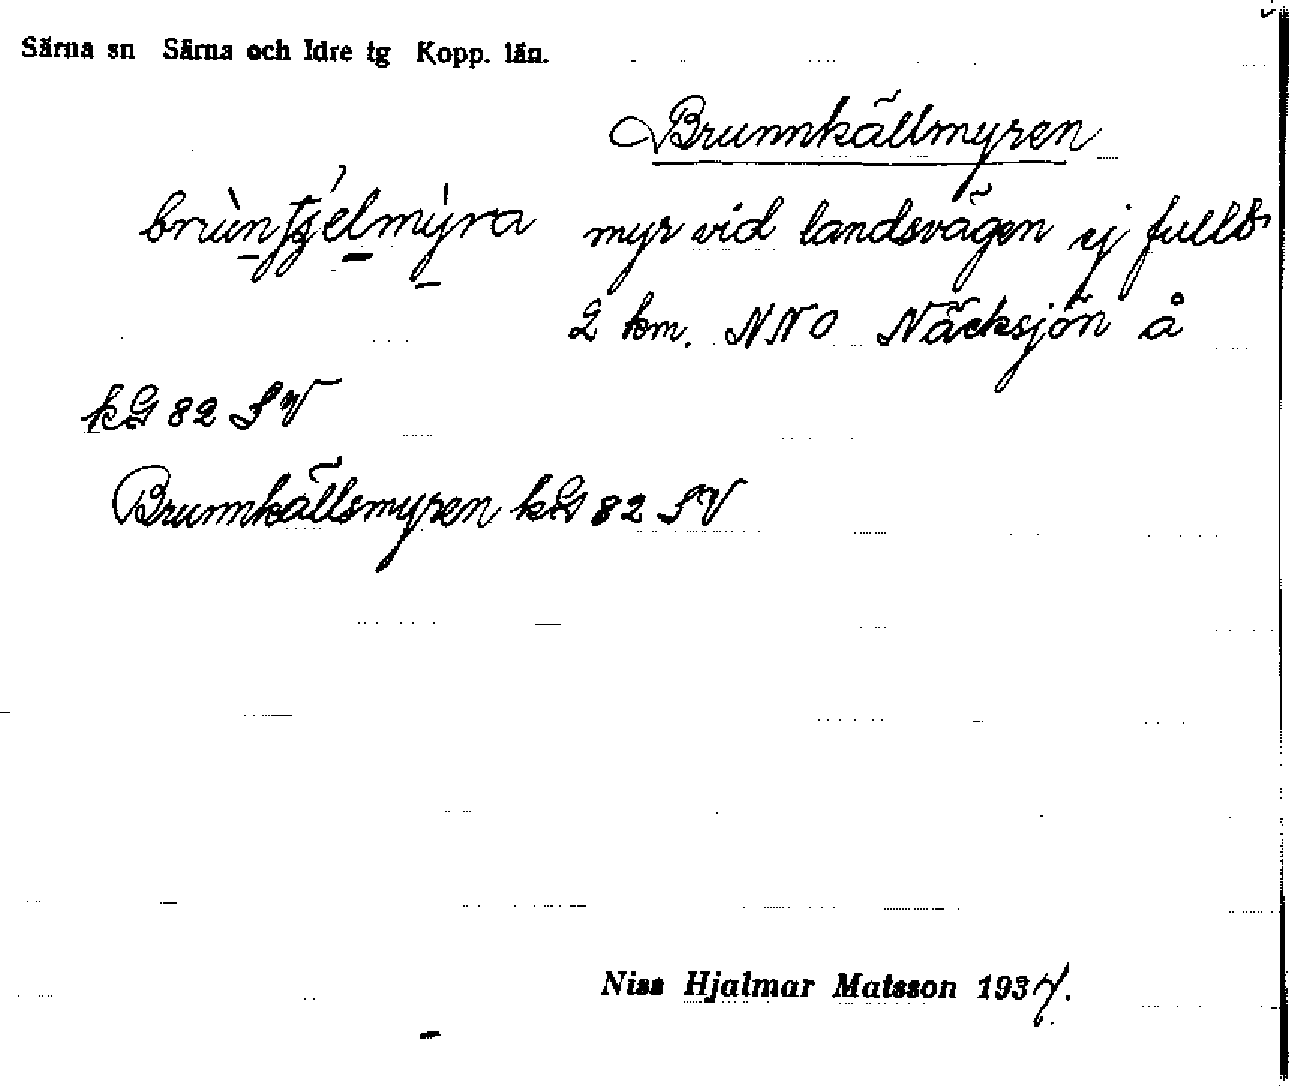 Särna sn Särna och Idre tg Kopp. län.
Brunnkällmyren
brùntjélmýra myr vid landsvägen ej fullt
2 km. NNO Näcksjön å
kG 82 SV
Brunnkällsmyren kG 82 SV
Niss Hjalmar Matsson 1937.